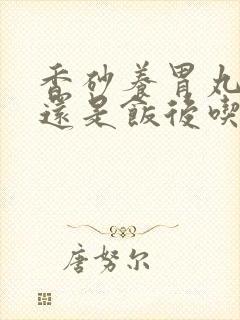 香砂養胃丸
還是飯後喫
唐努尔